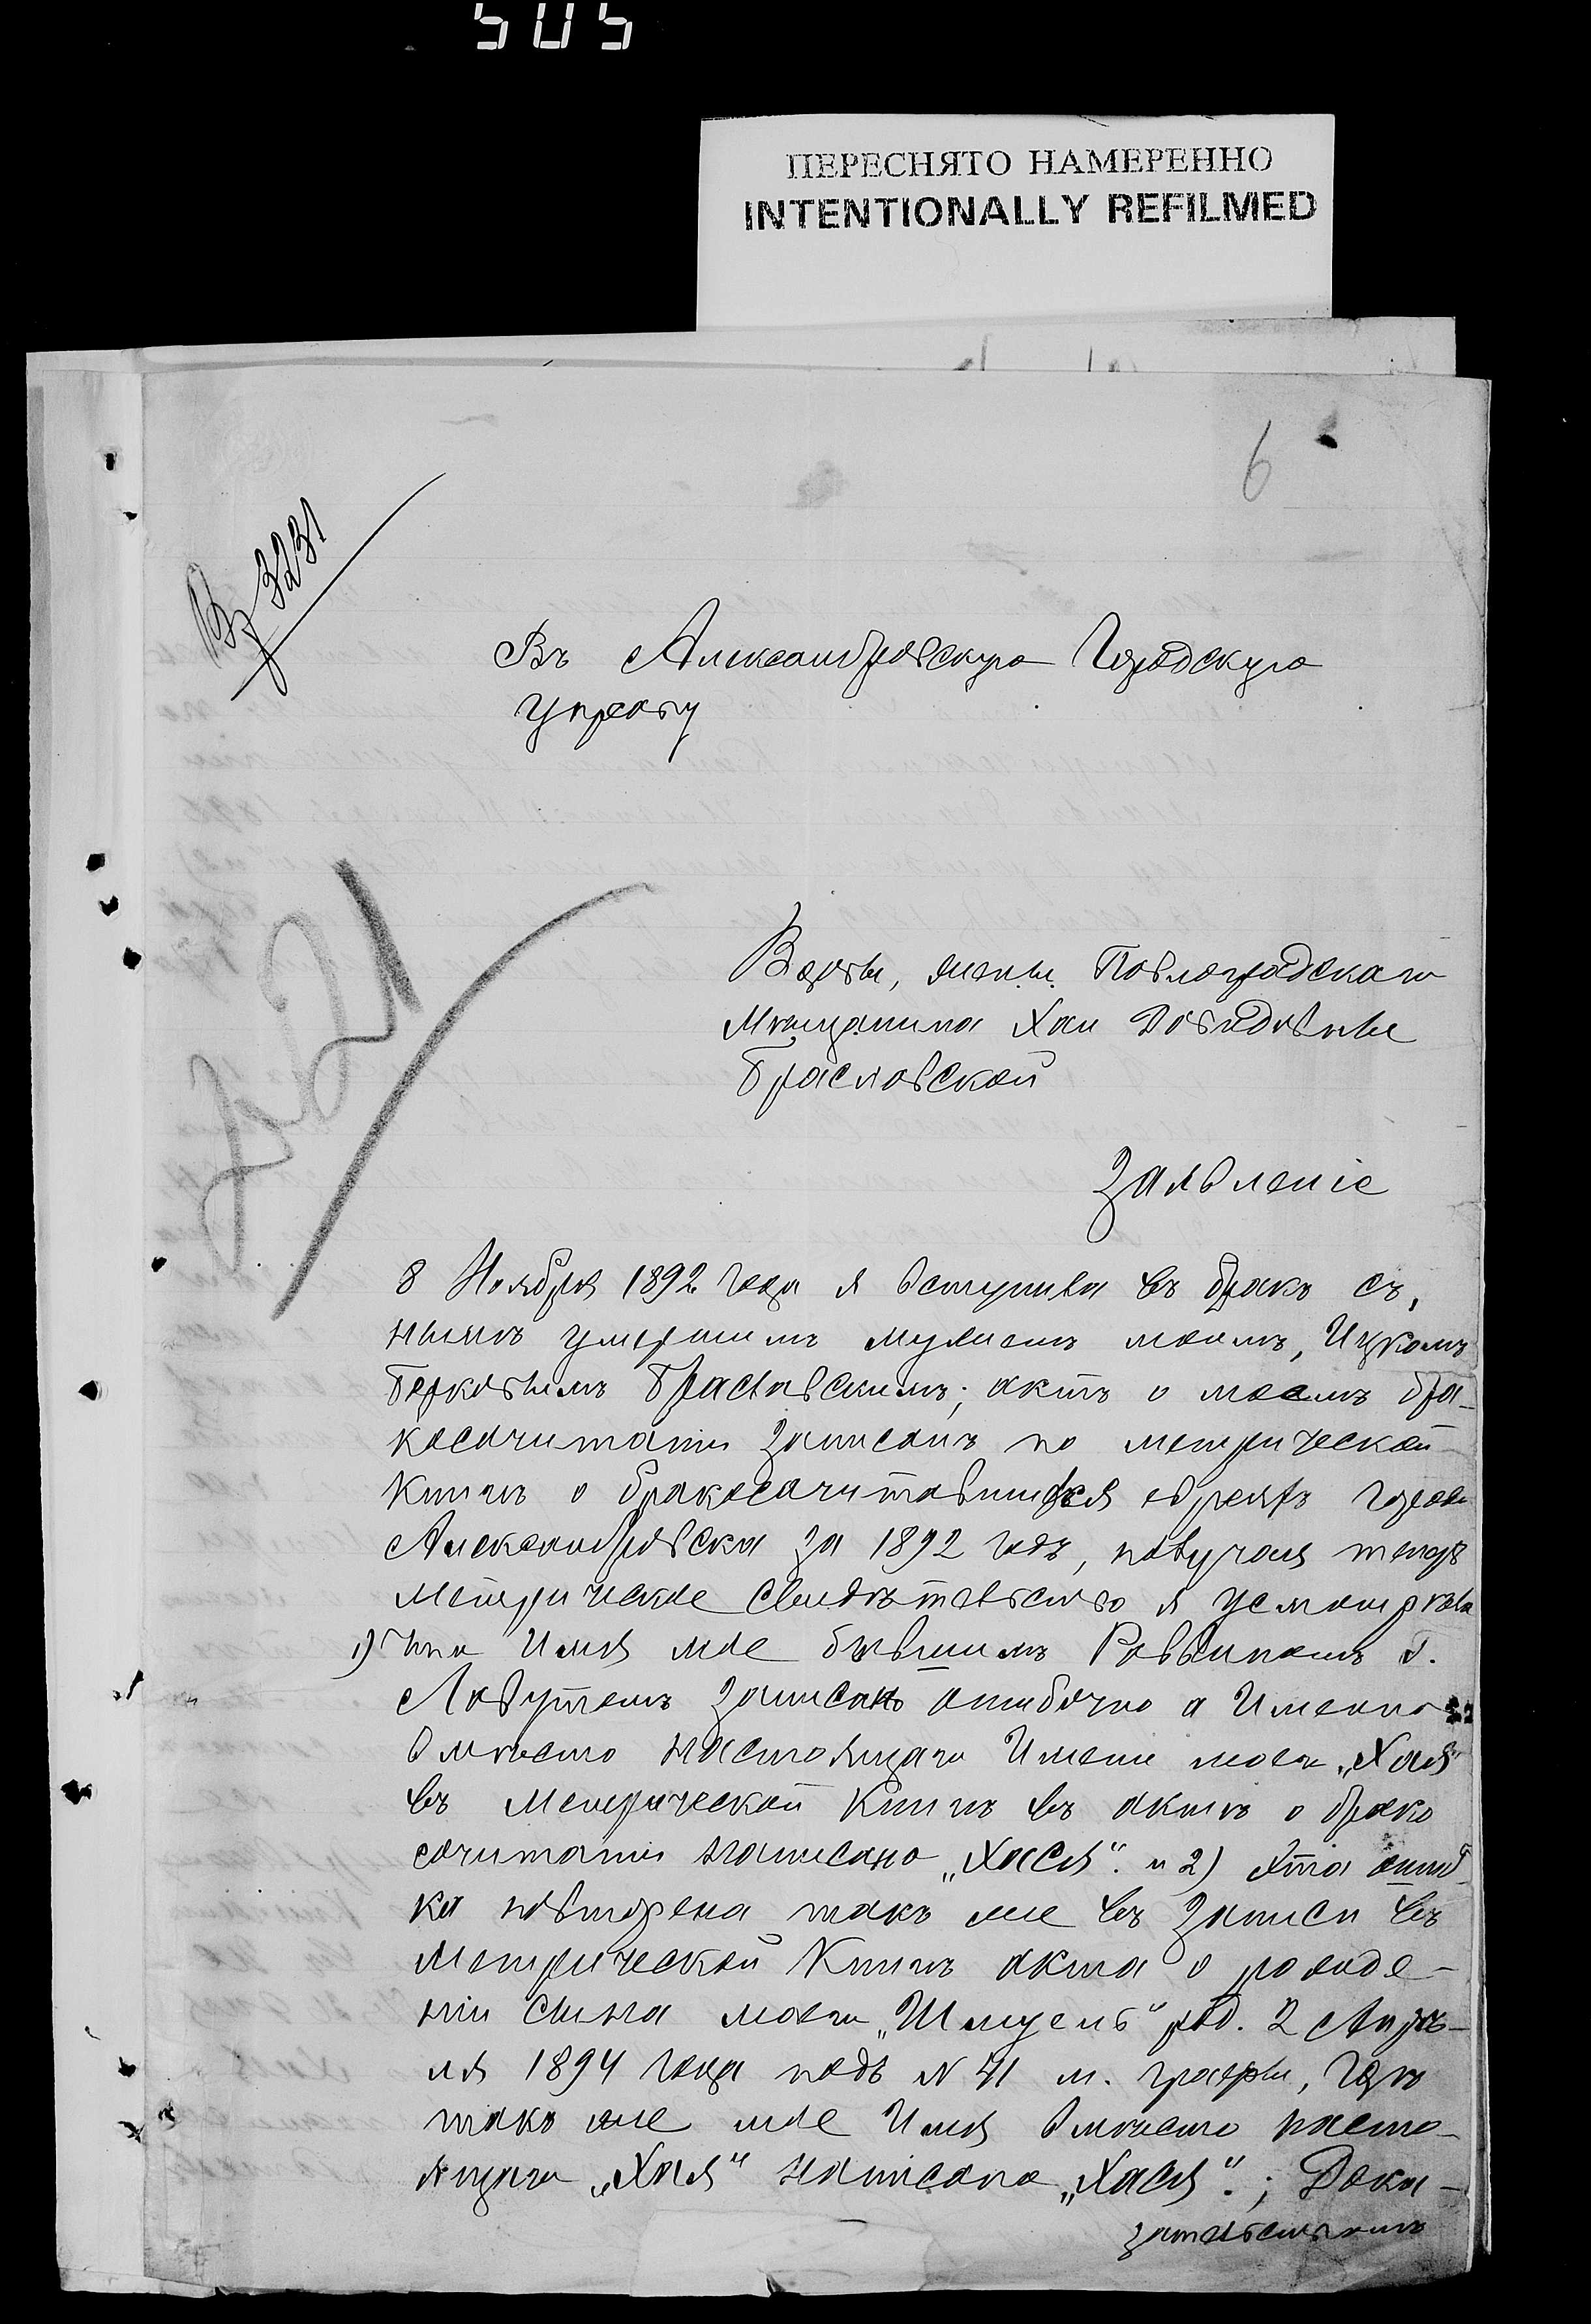 505
ПЕРЕСНЯТО НАМЕРЕННО
INTENTIONALLY REFILMED
6
Вх 3231
Въ Александровскую Городскую
Управу
Вдовы, жены Павлоградскаго
Мѣщанина Хаи Давидовны
Браславской
Заявленіе
8 Ноября 1892 года я вступила въ бракъ съ,
нынѣ умершимъ мужемъ моимъ, Ицкомъ
Берковымъ Браславскимъ; актъ о моемъ бра-
косочитаніи записанъ по метрической
Книгѣ о бракосочитавшихся евреяхъ города
Александровска за 1892 годъ, получая теперь
Метрическое свидѣтельство я усмотрѣла
1) что Имя мое бывшимъ Раввиномъ г.
записано ошибочно а Именно
вмѣсто настоящаго Имени моего „Хая"
въ Метрической Книгѣ въ актѣ о брако
сочитаніи написано „Хася". и 2) эта ошиб
ка повторена такъ же въ записи въ
Метрической Книгѣ акта о рожде-
ніи сына моего „Шмуель" род. 2 Апрѣ-
ля 1894 года подъ N 41 м. графы, гдѣ
такъ же мое Имя вмѣсто насто-
ящаго „Хая" написано „Хася".; Дока-
зательствомъ